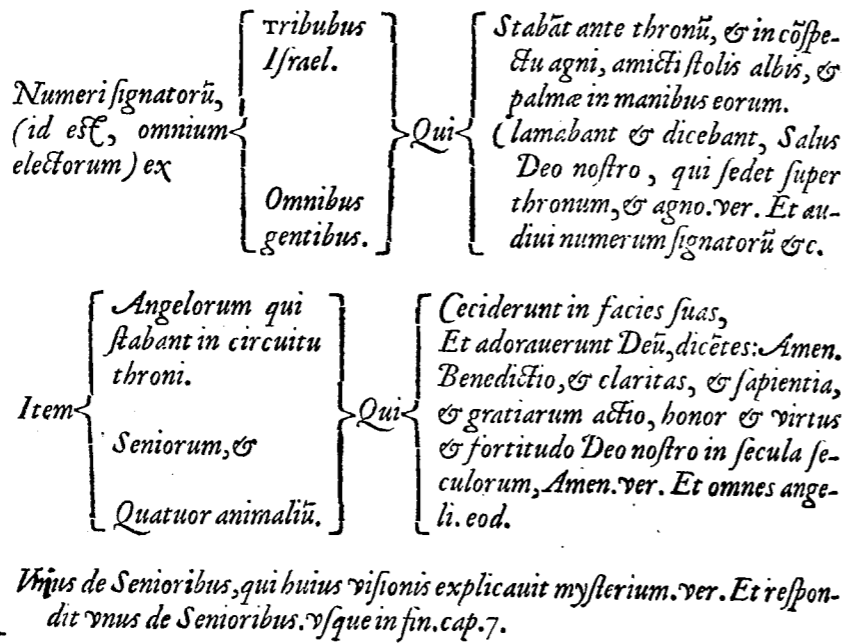 Numeri ſignatorū,
(id eſt, omnium
electorum) ex
Tribubus
Iſrael.
Omnibus
gentibus.
Qui
Stabāt ante thronū, & in cōſpe-
ctu agni, amicti ſtolis albis, &
palmæ in manibus eorum.
Clamabant & dicebant, Salus
Deo noſtro, qui ſedet ſuper
thronum, & agno. ver. Et au-
diui numerum ſignatorū &c.
Item
Angelorum qui
ſtabant in circuitu
throni.
Seniorum, &
Quatuor animaliū.
Qui
Ceciderunt in facies ſuas,
Et adorauerunt Deū, dicētes: Amen.
Benedictio, & claritas, & ſapientia,
& gratiarum actio, honor & virtus
& fortitudo Deo noſtro in ſecula ſe-
culorum, Amen. ver. Et omnes ange-
li. eod.
Vnius de Senioribus, qui huius viſionis explicauit myſterium. ver. Et reſpon-
dit vnus de Senioribus. vſque in fin. cap. 7.